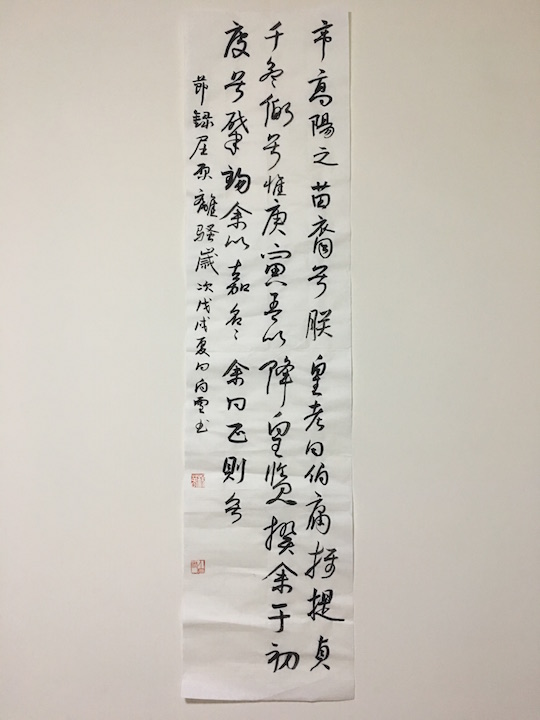 帝高陽之苗裔兮朕皇考曰伯庸攝提貞
于孟陬兮惟庚寅吾以降皇覽揆余于初
度兮肇錫余以嘉名〻余曰正則兮
節録屈原離騷歲次戊戌夏日雲书